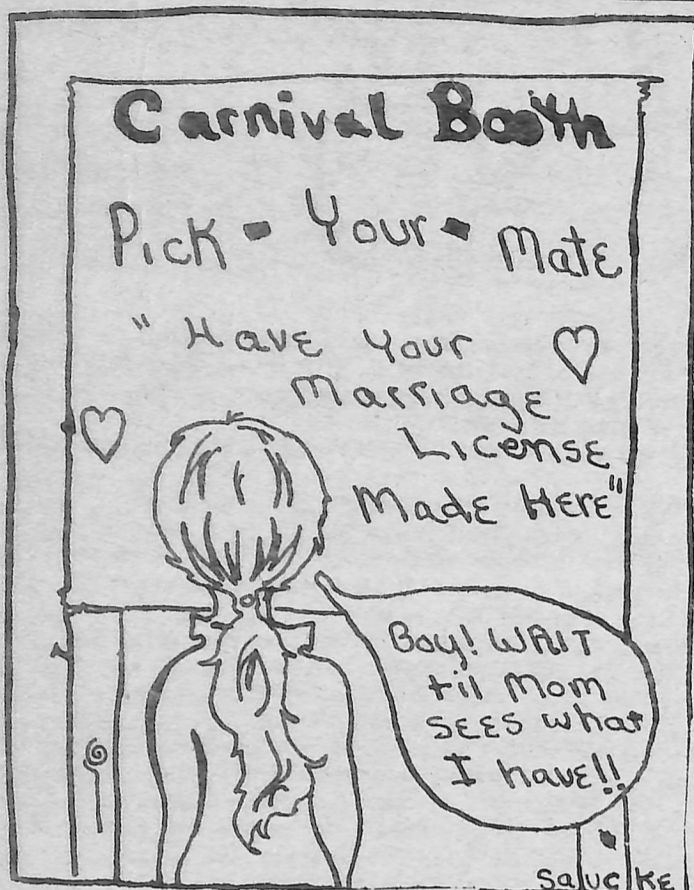 Carnival Booth
Pick - Your - Mate
"Have Your
Marriage
License
Made Here"
Boy! WAIT
til Mom
SEES what
I have!!